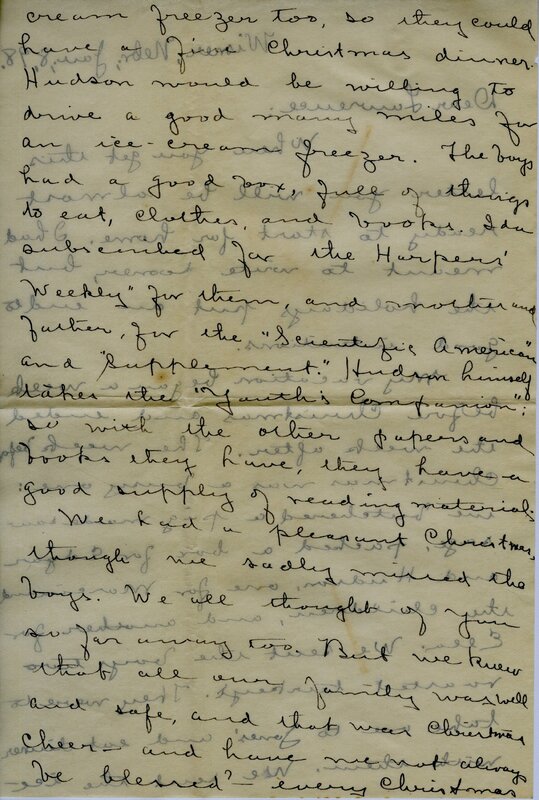 cream freezer too, so they could
have a fine Christmas dinner.
Hudson would be willing to
drive a good many miles for
an ice-cream freezer. The boys
had a good box, full of things
to eat, clothes, and books. Ida
subscribed for the Harpers'
Weekly" for them, and mother and
father, for the "Scientific American"
and "Supplement." Hudson himself
takes the "Youth's Companion":
so with the other papers and
books they have, they have a
good supply of reading material.
We had a pleasant Christmas,
though we sadly missed the
boys. We all thought of you
so far away too. But we knew
that all our family was well
and safe, and that was Christmas
cheer – and have we not always
be blessed? – every Christmas